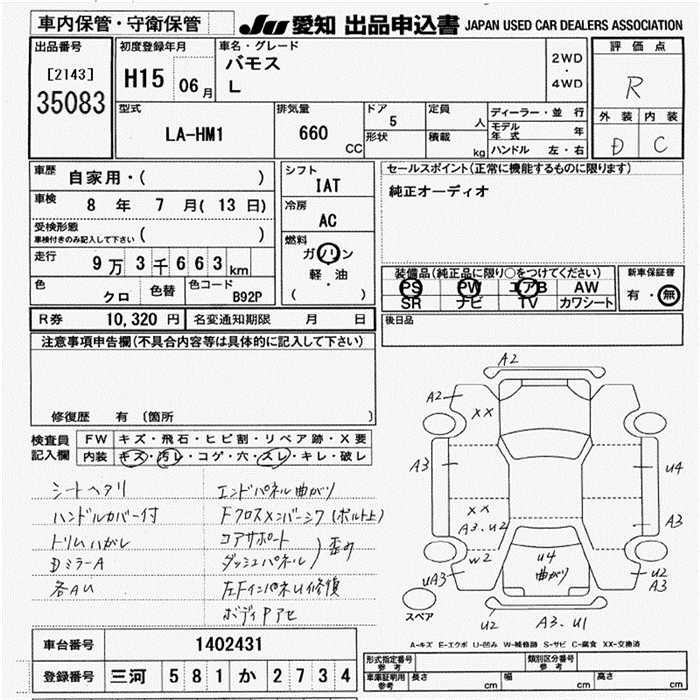 車内保管・守衛保管
JU 愛知 出品申込書 JAPAN USED CAR DEALERS ASSOCIATION
出品番号
[2143]
35083
初度登録年月
H15 06月
車名・グレード
バモス
L
2WD
・
4WD
評価点
R
外装 内装
D C
型式
LA-HM1
排気量
660 CC
ドア
5
形状
定員
人
積載
kg
ディーラー・並行
モデル年式 年
ハンドル 左・右
車歴 自家用・( )
車検 8年 7月(13日)
受検形態
車検付きのみ記入して下さい ( )
走行 9万3千663km
色 クロ 色替 色コード B92P
シフト
IAT
冷房
AC
燃料
ガソリン
軽・油
( )
セールスポイント(正常に機能するものに限ります)
純正オーディオ
装備品(純正品に限り○をつけてください)
PS PW エアB AW
SR ナビ TV カワシート
新車保証書
有・無
R券 10,320円 名変通知期限 月 日
後日品
注意事項申告欄(不具合内容等は具体的に記入して下さい)
修復歴 有 [箇所 ]
検査員記入欄
FW キズ・飛石・ヒビ割・リペア跡・X要
内装 キズ・汚レ・コゲ・穴・スレ・キレ・破レ
シートヘタリ
ハンドルカバー付
トリムハガレ
DミラーA
各AU
エンドパネル曲がり
Fクロスメンバーシワ(ボルト止)
コアサポート
ダッシュパネル ) 歪み
左Fインパネル修損
ボディPアセ
A2
A2 XX
A3 U4
XX
A3.U2 A3
W2 U4
曲がり
UA3 U2
A3
スペア
U2 A3.U1
A-キズ E-エクボ U-凹み W-補修跡 S-サビ C-腐食 XX-交換済
車台番号 1402431
登録番号 三河 581 か 2734
形式指定番号 参考 類別区分番号 参考
車庫証明用 参考 長さ cm 幅 cm 高さ cm